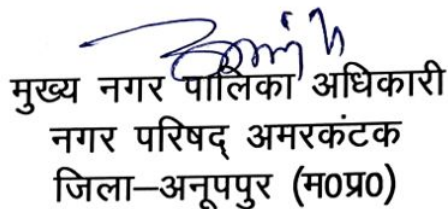 मुख्य नगर पालिका अधिकारी
नगर परिषद् अमरकंटक
जिला–अनूपपुर (म0प्र0)